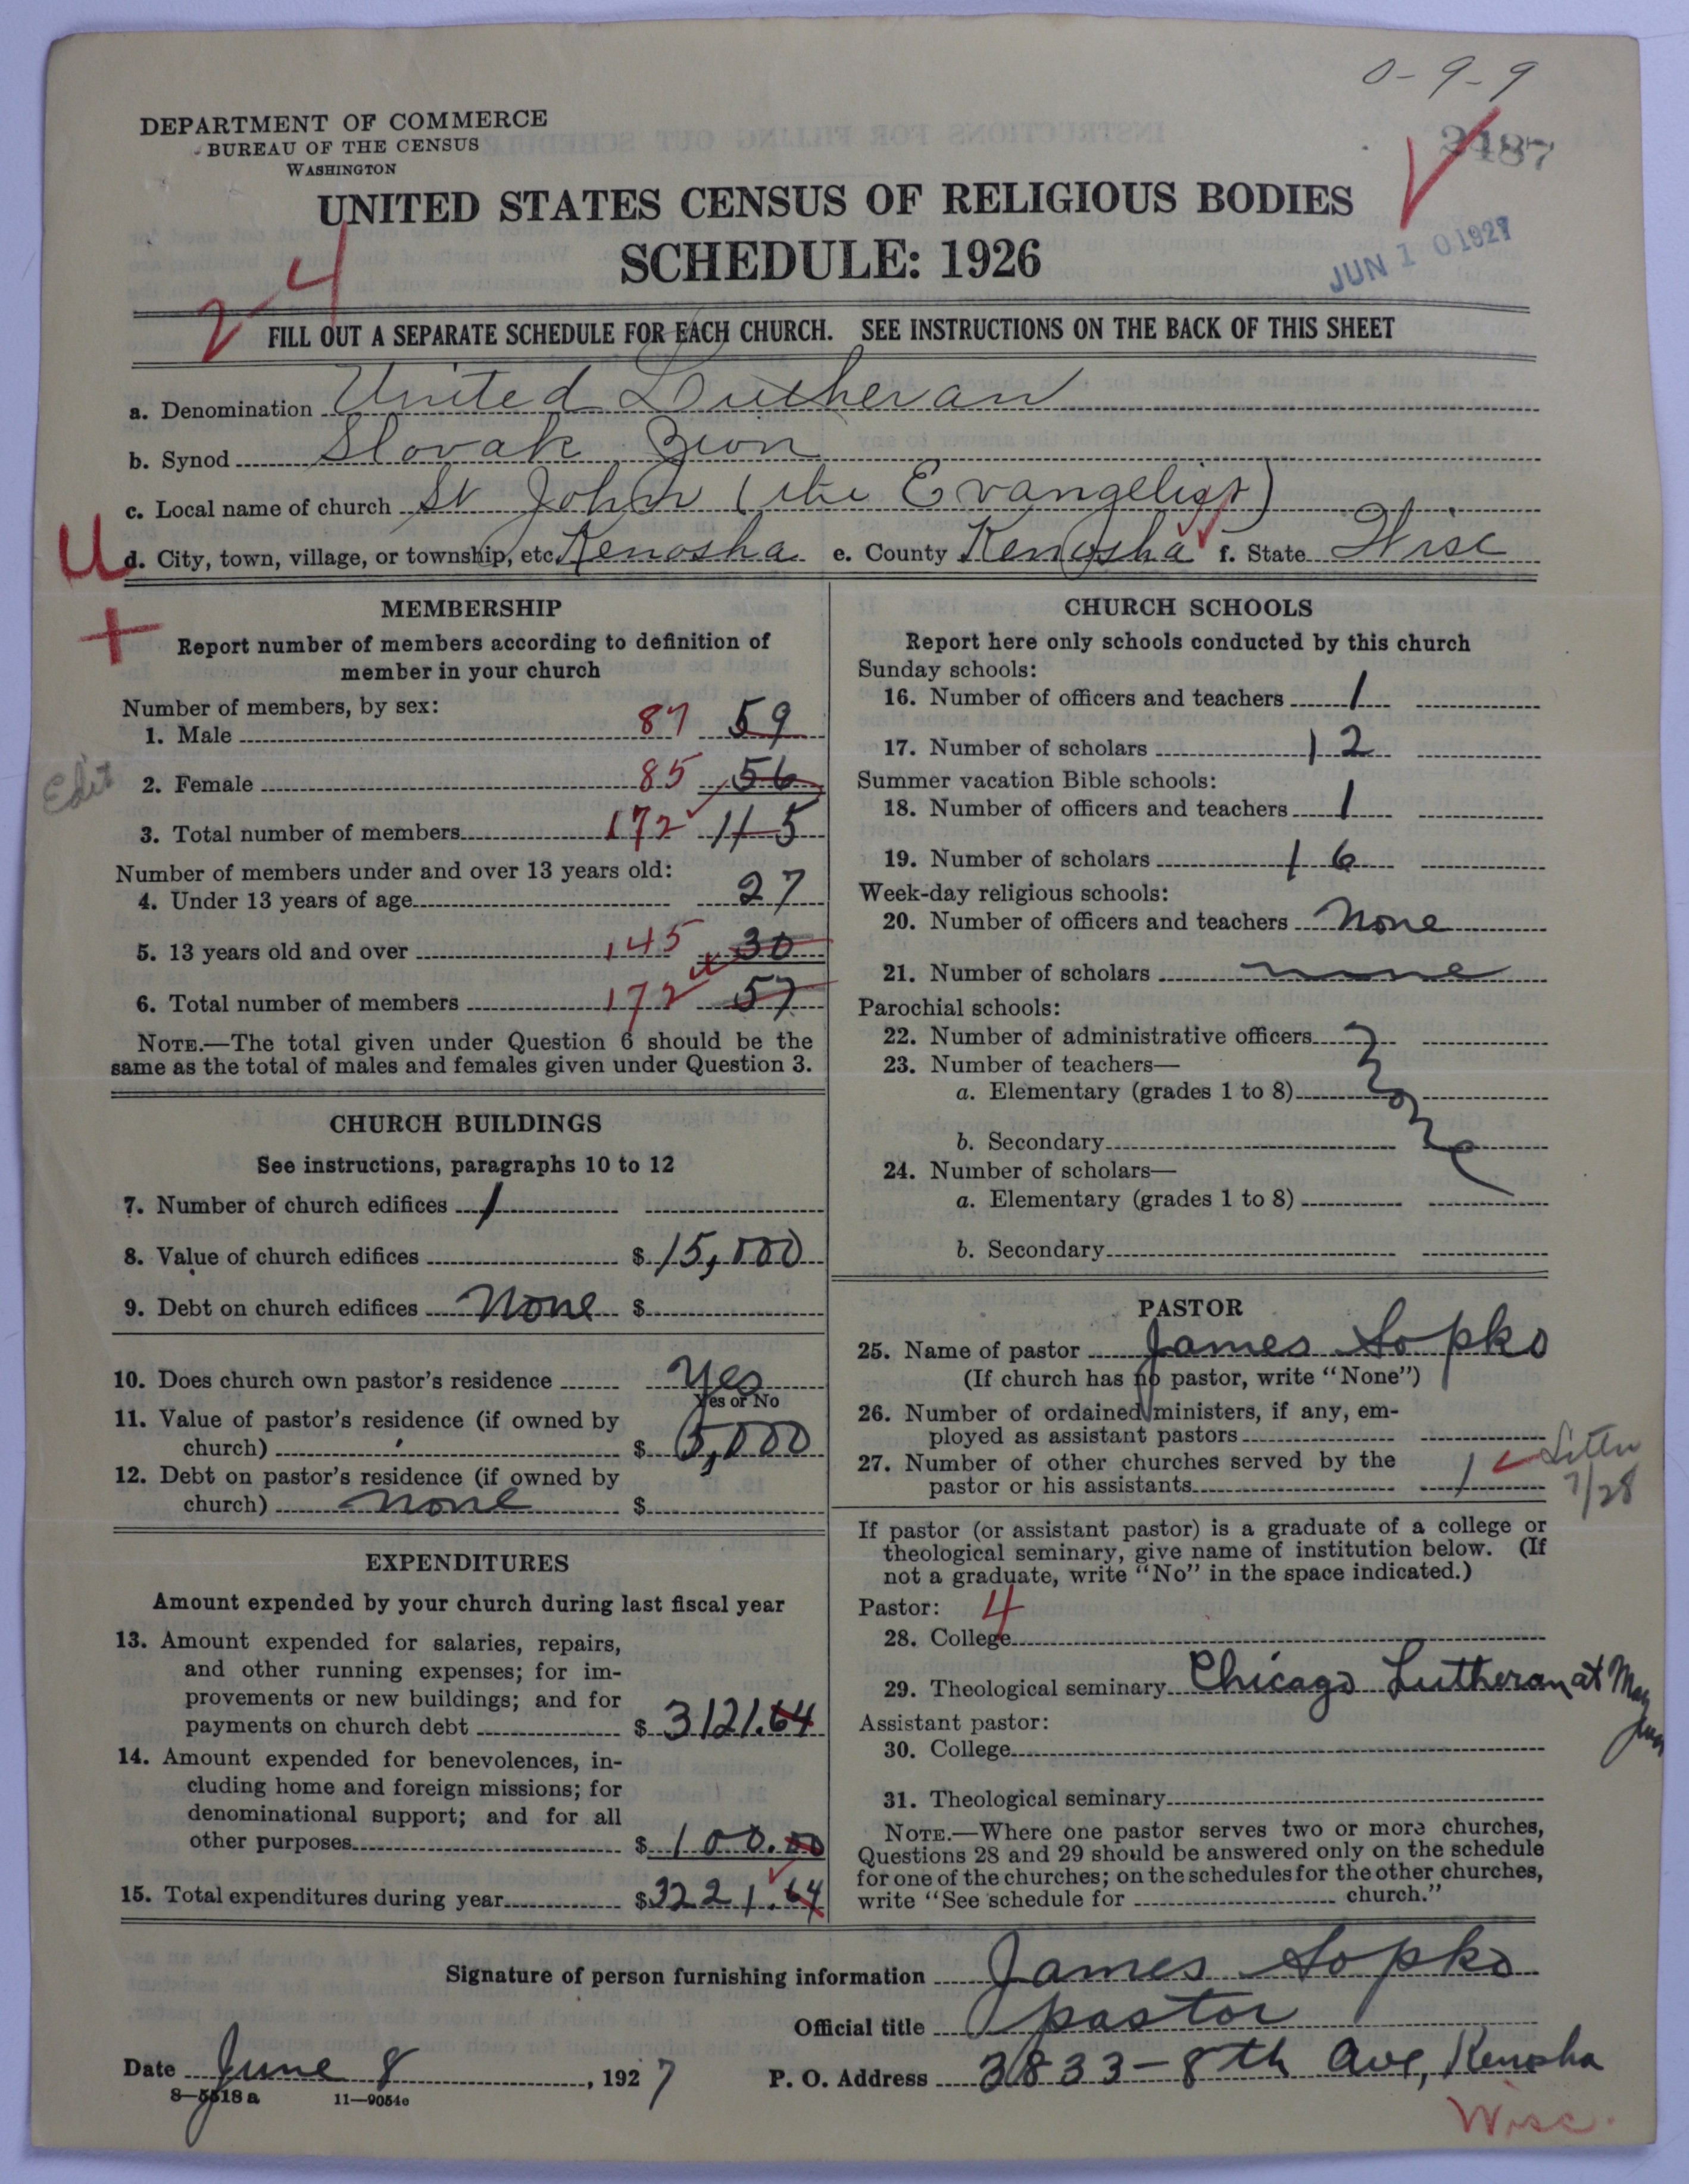 0-9-9
DEPARTMENT OF COMMERCE
BUREAU OF THE CENSUS
WASHINGTON
2187
UNITED STATES CENSUS OF RELIGIOUS BODIES
SCHEDULE: 1926
JUN 10 1927
2 4
FILL OUT A SEPARATE SCHEDULE FOR EACH CHURCH. SEE INSTRUCTIONS ON THE BACK OF THIS SHEET
a. Denomination United Lutheran
b. Synod Slovak Zion
c. Local name of church St John (the Evangelist)
U d. City, town, village, or township, etc. Kenosha e. County Kenosha f. State Wisc
+
MEMBERSHIP
Report number of members according to definition of
member in your church
Number of members, by sex:
1. Male 87 59
Edit
2. Female 85 56
3. Total number of members 172 115
Number of members under and over 13 years old:
4. Under 13 years of age 27
5. 13 years old and over 145 30
6. Total number of members 172 57
NOTE.—The total given under Question 6 should be the
same as the total of males and females given under Question 3.
CHURCH BUILDINGS
See instructions, paragraphs 10 to 12
7. Number of church edifices 1
8. Value of church edifices $ 15,000
9. Debt on church edifices None $
10. Does church own pastor's residence Yes
Yes or No
11. Value of pastor's residence (if owned by
church) $ 5,000
12. Debt on pastor's residence (if owned by
church) none $
EXPENDITURES
Amount expended by your church during last fiscal year
13. Amount expended for salaries, repairs,
and other running expenses; for im-
provements or new buildings; and for
payments on church debt $ 3121.64
14. Amount expended for benevolences, in-
cluding home and foreign missions; for
denominational support; and for all
other purposes $ 100.00
15. Total expenditures during year $ 3221.64
CHURCH SCHOOLS
Report here only schools conducted by this church
Sunday schools:
16. Number of officers and teachers 1
17. Number of scholars 12
Summer vacation Bible schools:
18. Number of officers and teachers 1
19. Number of scholars 16
Week-day religious schools:
20. Number of officers and teachers None
21. Number of scholars none
Parochial schools:
22. Number of administrative officers
23. Number of teachers—
None
a. Elementary (grades 1 to 8)
b. Secondary
24. Number of scholars—
a. Elementary (grades 1 to 8)
b. Secondary
PASTOR
25. Name of pastor James Sopko
(If church has no pastor, write "None")
26. Number of ordained ministers, if any, em-
ployed as assistant pastors
27. Number of other churches served by the
pastor or his assistants 1
7/28
If pastor (or assistant pastor) is a graduate of a college or
theological seminary, give name of institution below. (If
not a graduate, write "No" in the space indicated.)
Pastor: 4
28. College
29. Theological seminary Chicago Lutheran at May
Assistant pastor:
30. College
31. Theological seminary
NOTE.—Where one pastor serves two or more churches,
Questions 28 and 29 should be answered only on the schedule
for one of the churches; on the schedules for the other churches,
write "See schedule for church."
Signature of person furnishing information James Sopko
Official title pastor
Date June 8, 1927 P. O. Address 3833-8th Ave, Kenosha
Wisc.
8-5518 a 11-9054c